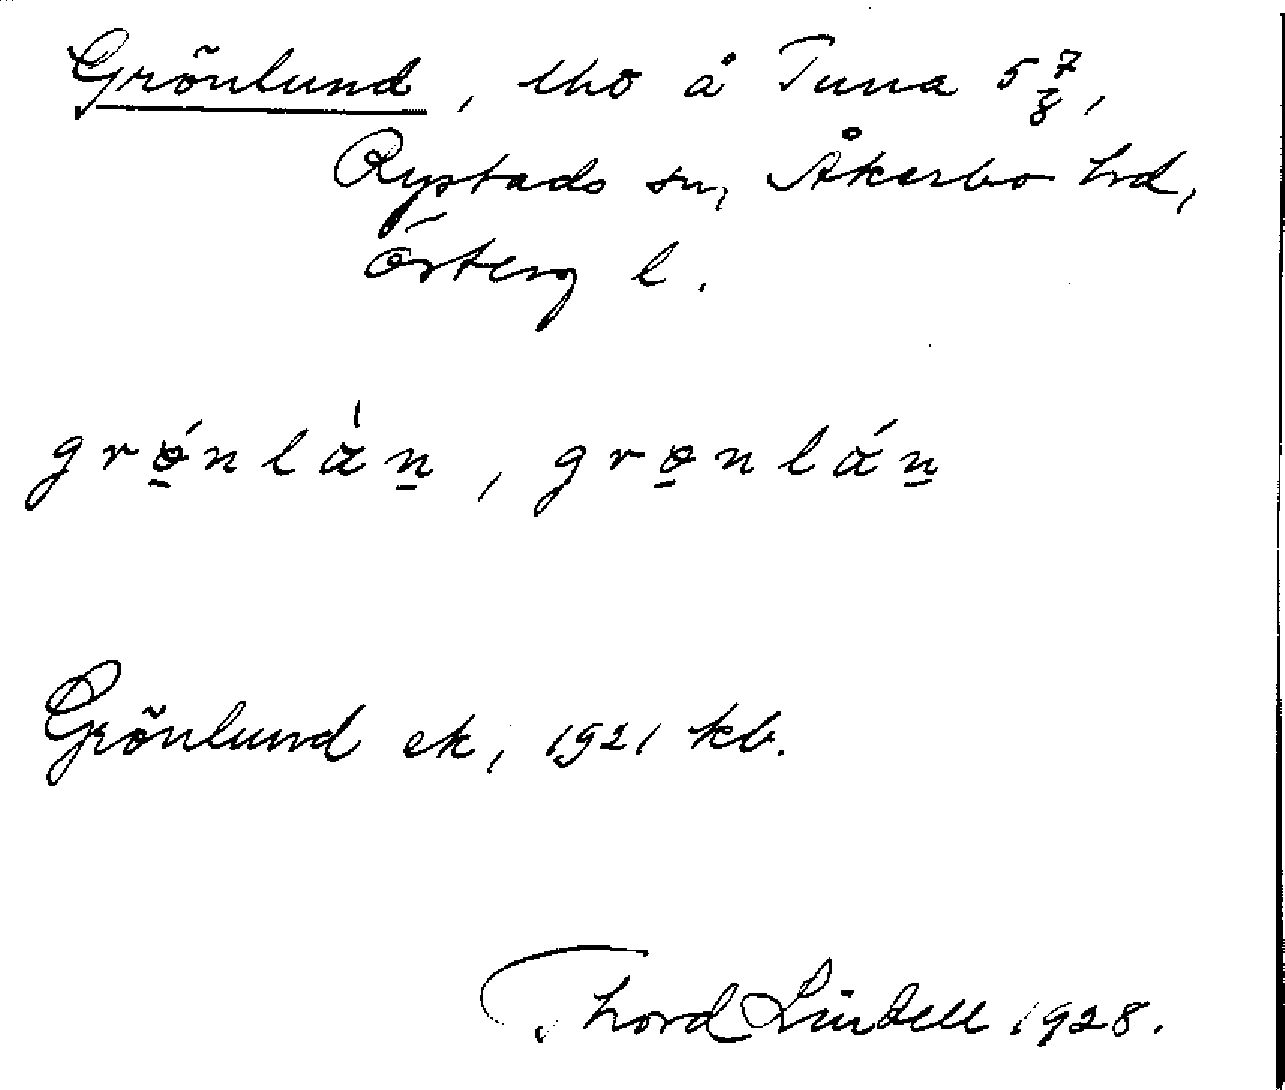 Grönlund, lho å Tuna 5 7/8,
Rystads sn, Åkerbo hd,
Österg l.
grǿ̠nlàn̠, grø̠nlán̠
Grönlund ek, 1921 kb.
Thord Lindell 1928.